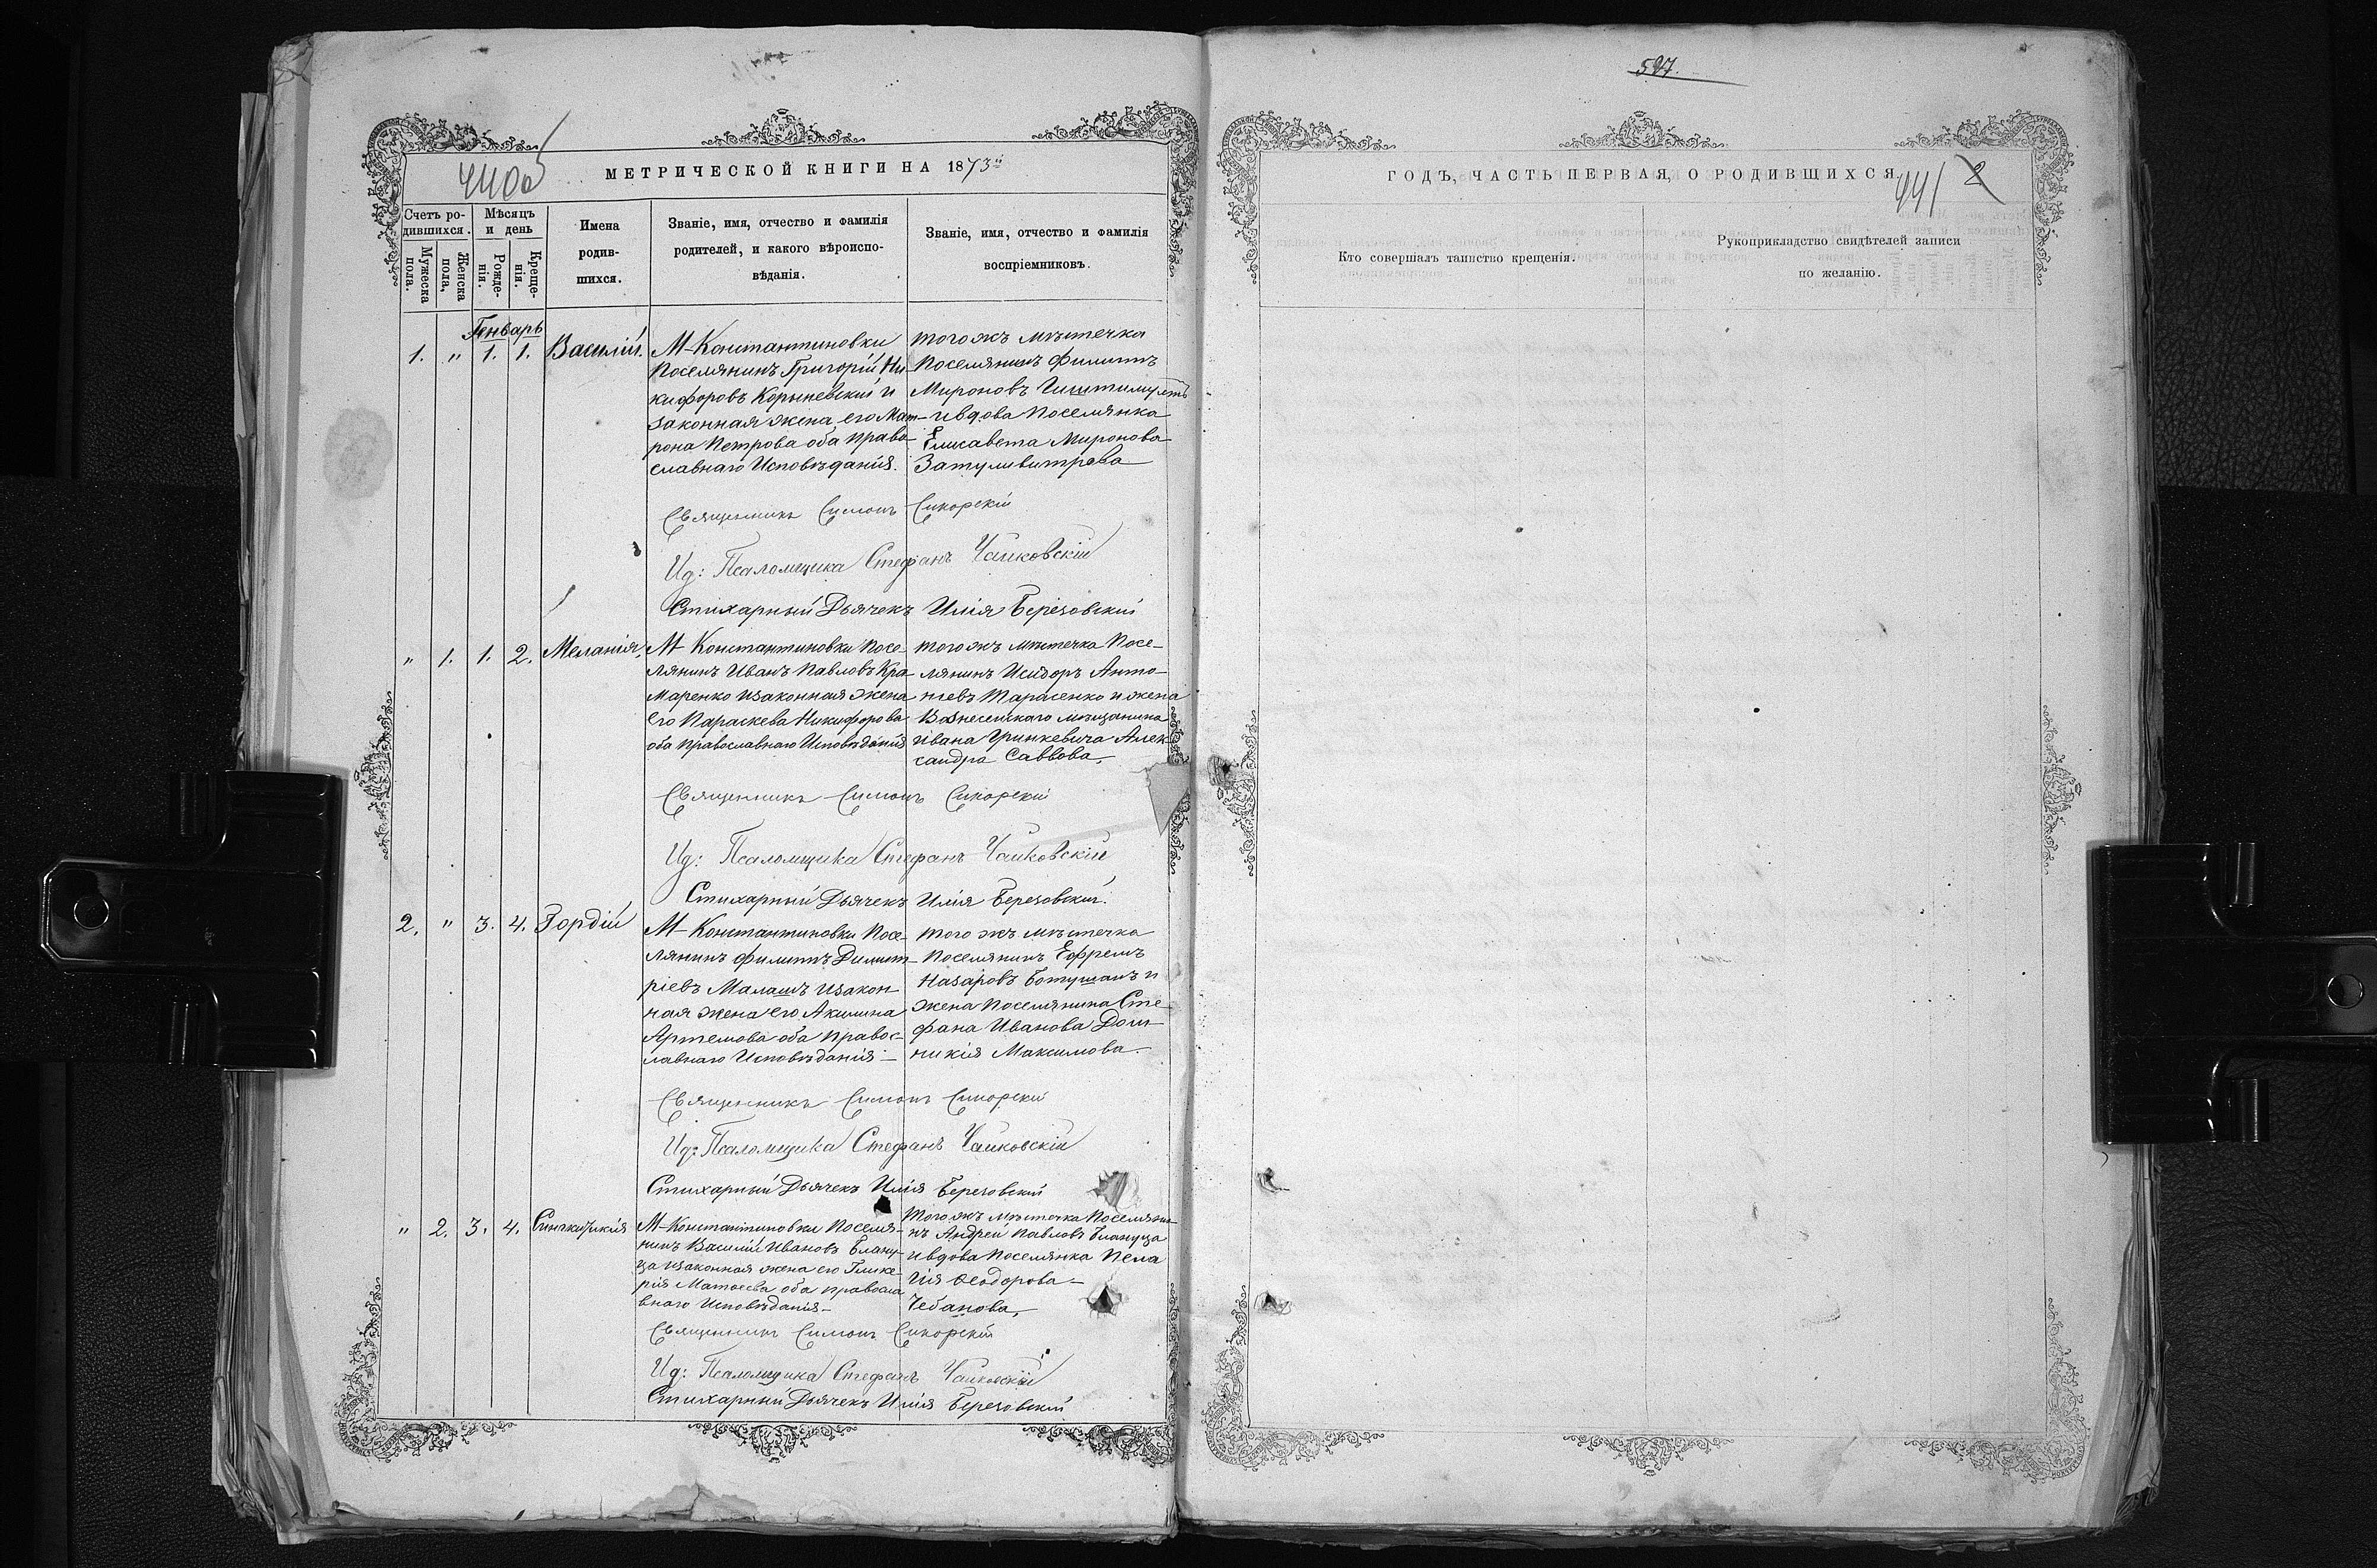 440об
МЕТРИЧЕСКОЙ КНИГИ НА 1873й
Счетъ ро-
дившихся.
Мужеска
пола.
Женска
пола,
Мѣсяцъ
и день
Рожде-
нія.
Креще-
нія.
Имена
родив-
шихся.
Званіе, имя, отчество и фамилія
родителей, и какого вѣроиспо-
вѣданія.
Званіе, имя, отчество и фамилія
воспріемниковъ.
Генварь
1. " 1. 1. Василій.
М-Константиновки
Поселянинъ Григорій Ни-
кифоровъ Корыневскій и
законная жена его Мат-
рона Петрова оба право-
славнаго Исповѣданія.
тогожъ мѣстечка
Поселянинъ Филиппъ
Мироновъ
ивдова Поселянка
Елисавета Миронова
Затуливитрова
Священникъ Симонъ Сикорскій
Ид: Псаломщика Стефанъ Чайковскій
Стихарный Дьячекъ Илія Березовскій
" 1. 1. 2. Меланія.
М-Константиновки Посе-
лянинъ Иванъ Павловъ Кра-
маренко изаконная жена
его Параскева Никифорова
оба православнаго Исповѣданія
тогожъ мѣстечка Посе-
лянинъ Исидоръ Анто-
ніевъ Тарасенко и жена
Вознесенскаго мѣщанина
Ивана Гринкевича Алек
сандра Саввова.
Священникъ Симонъ Сикорскій
Ид: Псаломщика Стефанъ Чайковскій
Стихарный Дьячекъ Илія Березовскій.
2. " 3. 4. Гордій
М-Константиновки Посе-
лянинъ Филиппъ Димит-
ріевъ Малашъ изакон
ная жена его Акилина
Артемова оба правос-
лавнаго Исповѣданія-
того жъ мѣстечка
Поселянинъ Ефремъ
Назаровъ Ботушанъ и
жена Поселянина Сте-
фана Иванова Дом-
никія Максимова.
Священникъ Симонъ Сикорскій
Ид: Псаломщика Стефанъ Чайковскій
Стихарный Дьячекъ Илія Березовскій
" 2. 3. 4. Синклитикія
М-Константиновки Поселя-
нинъ Василій Ивановъ Блану-
ца изаконная жена его Глике-
рія Матѳеева оба правосла
внаго Исповѣданія-
Тогожъ мѣстечка Поселяни-
нъ Андрей Павловъ Блануца
ивдова Поселянка Пела
гія Ѳеодорова-
Чебанова.
Священникъ Симонъ Сикорскій
Ид: Псаломщика Стефанъ Чайковскій
Стихарный Дьячекъ Илія Березовскій
527.
ГОДЪ, ЧАСТЬ ПЕРВАЯ, О РОДИВШИХСЯ
441
2
Кто совершалъ таинство крещенія.
Рукоприкладство свидѣтелей записи
по желанію.